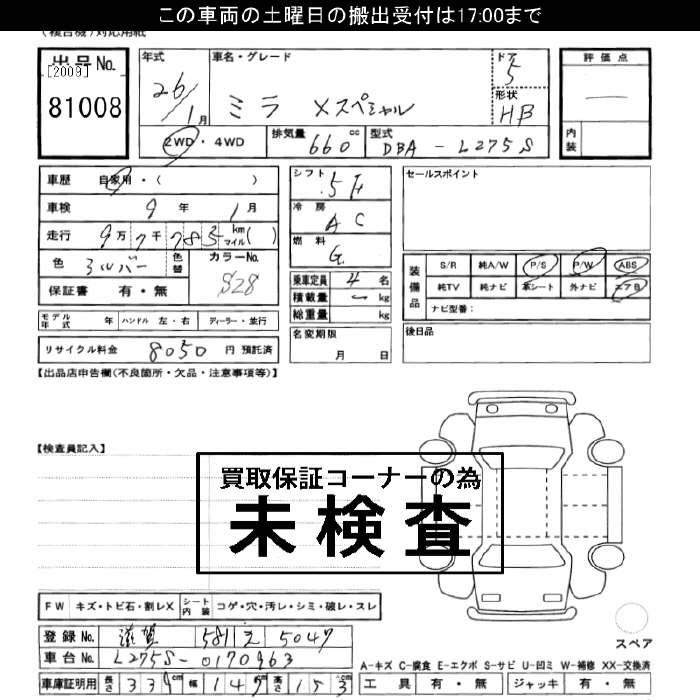 この車両の土曜日の搬出受付は17:00まで
(複合機)対応用紙
出品No.
[2009]
81008
年式
26/1月
車名・グレード
ミラ Xスペシャル
ドア
5
形状
HB
評価点
内装
2WD・4WD
排気量 660 cc
型式 DBA-L275S
車歴 自家用・( )
車検 9年 1月
走行 9万7千783 km マイル( )
色 シルバー
色替
カラーNo.
S28
保証書 有・無
シフト 5F
冷房 AC
燃料 G
乗車定員 4名
積載量 kg
総重量 kg
セールスポイント
装備品
S/R 純A/W P/S P/W ABS
純TV 純ナビ 革シート 外ナビ エアB
ナビ型番:
モデル年式 年 ハンドル 左・右 ディーラー・並行
リサイクル料金 8050円 預託済
名変期限
月 日
後日品
【出品店申告欄(不良箇所・欠品・注意事項等)】
【検査員記入】
買取保証コーナーの為
未検査
FW キズ・トビ石・割レX シート内装 コゲ・穴・汚レ・シミ・破レ・スレ
登録No. 滋賀 581 え 5047
車台No. L275S-0170963
車庫証明用 長さ 339 幅 147 高さ 153 cm
スペア
A-キズ C-腐食 E-エクボ S-サビ U-凹ミ W-補修 XX-交換済
工具 有・無 ジャッキ 有・無